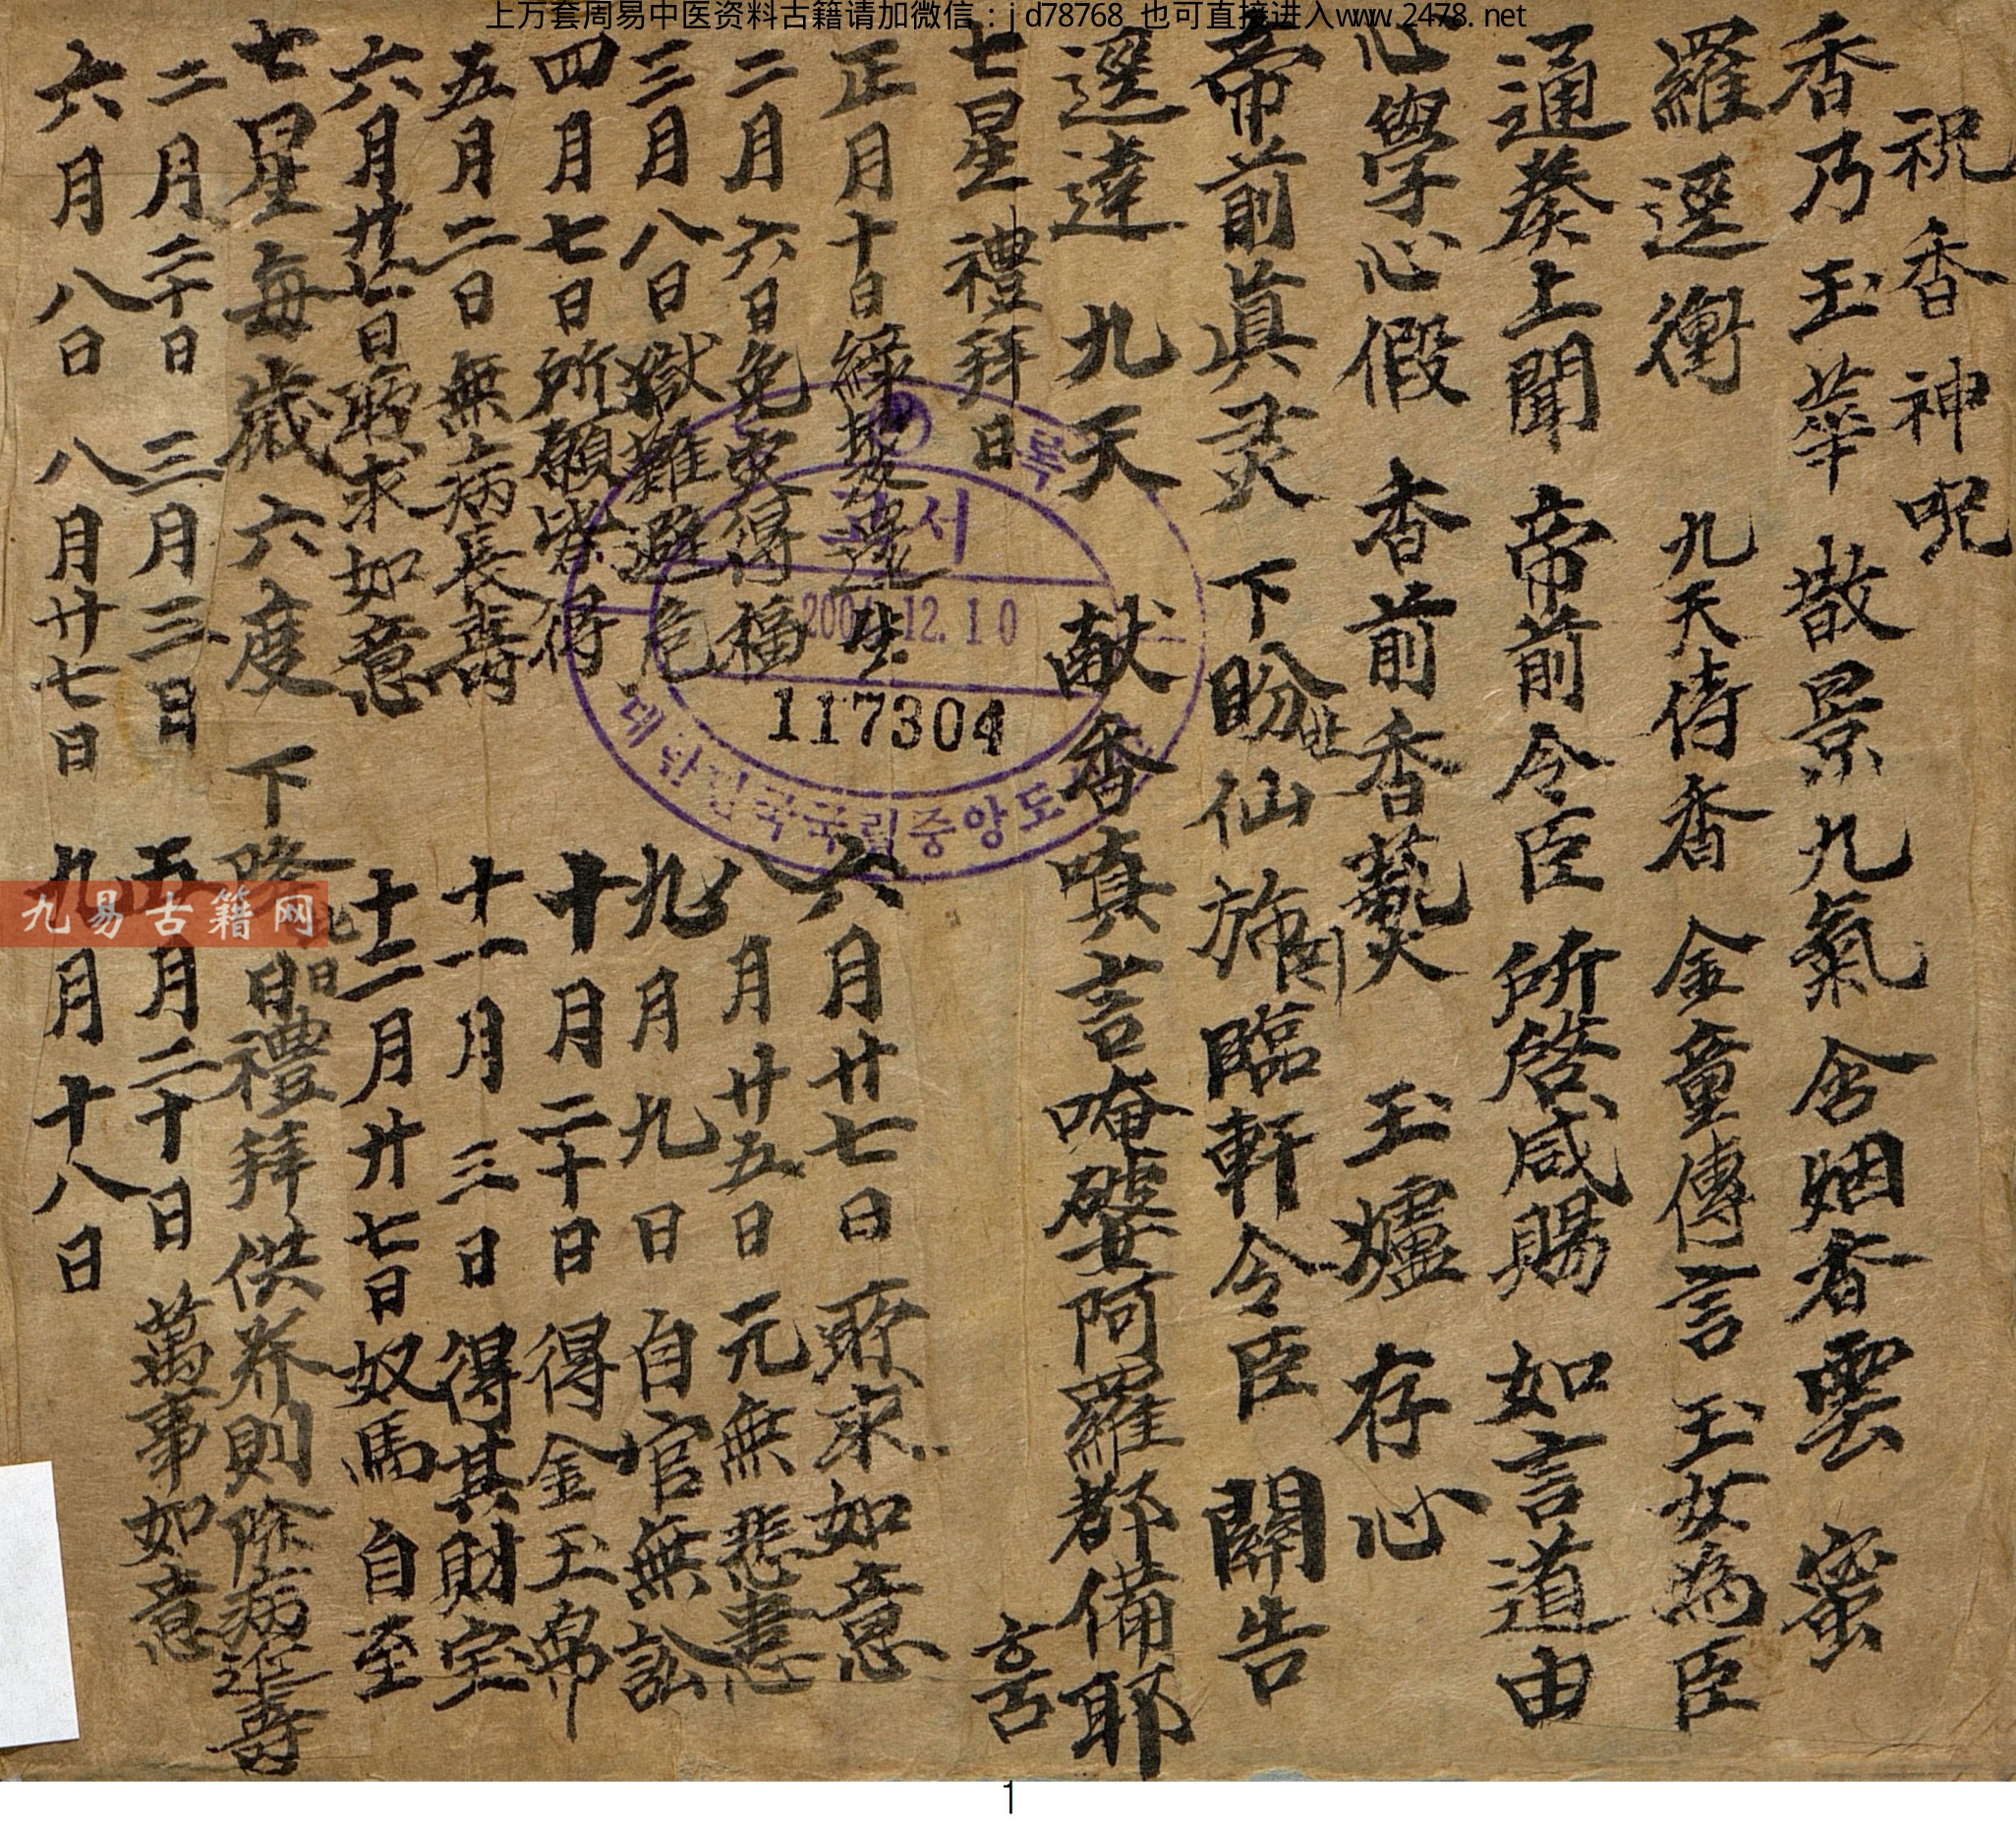 上万套周易中医资料古籍请加微信：jd78768 也可直接进入www.2478.net
祝香神呪
香乃玉華 散景九氣 含烟香雲 蜜
羅逕衝 九天侍香 金童傳言 玉女為臣
通奏上聞 帝前令臣 所啓咸賜 如言道由
心學心假 香前香爇 玉爐存心
帝前眞灵 下盼仙旆臨軒令臣 關告
逕達 九天 献香嗔言唵婆阿羅都備耶
훔
七星禮拜日
正月十日
二月六日免灾得福
三月八日獄難避危
四月七日所願皆得
五月二日無病長壽
六月廿七日所求如意
六月廿七日所求如意
八月廿五日元無悲恚
九月九日自官無訟
十月二十日得金玉帛
十一月三日得其財宝
十二月廿七日奴馬自至
七星每歲六度下降日禮拜供养則除病延壽
二月二十日 三月三日 五月二十日 萬事如意
六月八日 八月廿七日 九月十八日
고서
12.10
117304
대한민국국립중앙도
九易古籍网
1